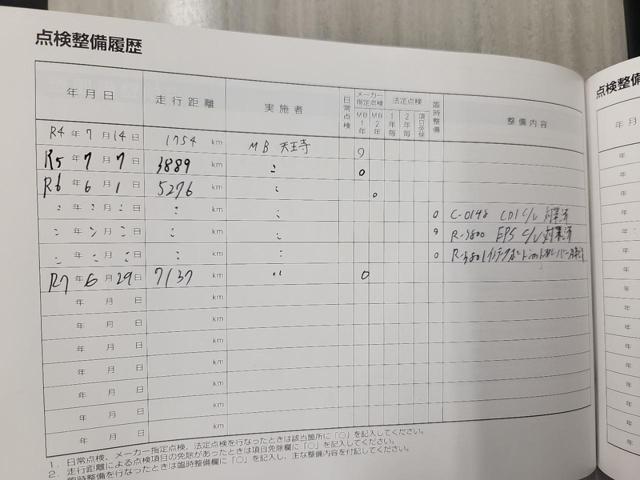 点検整備履歴
点検整備
年月日 走行距離 実施者 日常点検 メーカー指定点検 MB1年 MB2年 法定点検 1年毎 2年毎 項目免除 臨時整備 整備内容
R4年7月14日 1754 km MB 天王寺 ○
R5年7月7日 3889 km 〃 ○
R6年6月1日 5276 km 〃 ○
〃年〃月〃日 〃 km 〃 ○ C-0148 CDI C/U 対策済
〃年〃月〃日 〃 km 〃 ○ R-3800 EPS C/U 対策済
〃年〃月〃日 〃 km 〃 ○
R7年6月29日 7137 km 〃 ○
年 月 日 km
年 月 日 km
年 月 日 km
年 月 日 km
年 月 日 km
年 月 日 km
1. 日常点検、メーカー指定点検、法定点検を行なったときは該当箇所に「○」を記入してください。
2. 走行距離による点検項目の免除があったときは項目免除欄に「○」を記入してください。
臨時整備を行なったときは臨時整備欄に「○」を記入し、主な整備内容を付記してください。